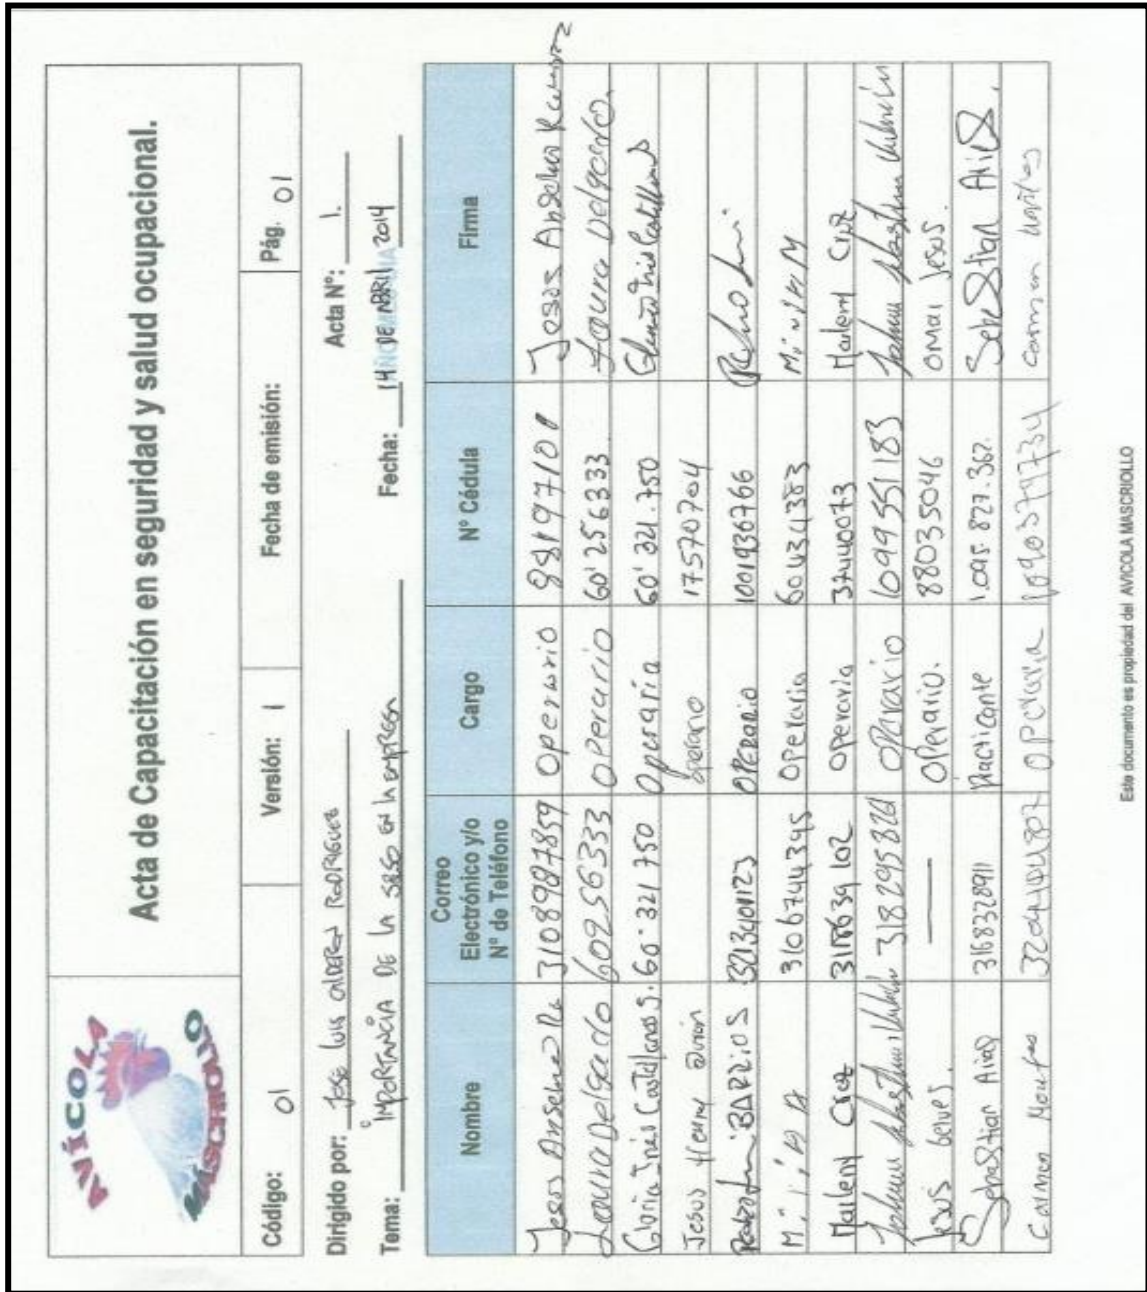 AVÍCOLA
MASCRIOLLO
Acta de Capacitación en seguridad y salud ocupacional.
Código: 01 Versión: 1 Fecha de emisión: Pág. 01
Dirigido por: José Luis Caldera Rodriguez Acta N°: 1.
Tema: IMPORTANCIA DE LA S&SO EN LA EMPRESA Fecha: 14 DE ABRIL 2014
Nombre Correo Electrónico y/o N° de Teléfono Cargo N° Cédula Firma
Jesos Anselmo Ra 3108987859 operario 88197101 Josos Anselmo
Laura Delgado 60256333 operario 60'256333 Laura Delgado.
Gloria Inés Castellanos S. 60·321750 Operaria 60'321.750 Gloria Inés Castellanos
Jesus Henry operario 17570704
BARRIOS 3213401123 OPERARIO 1001936766
3106744345 Operaria 60434383
Marleny Cruz 3118639102 operaria 37440073 Marleny Cruz
318295826 operario 1099551183
Jesus — operario. 88035046 OMAI Jesus.
Sebastian Arias 3168328911 Practicante 1.095.827.362. Sebastian Arias.
Carmen 3204404807 operaria 1090379734 Carmen
Este documento es propiedad del AVICOLA MASCRIOLLO